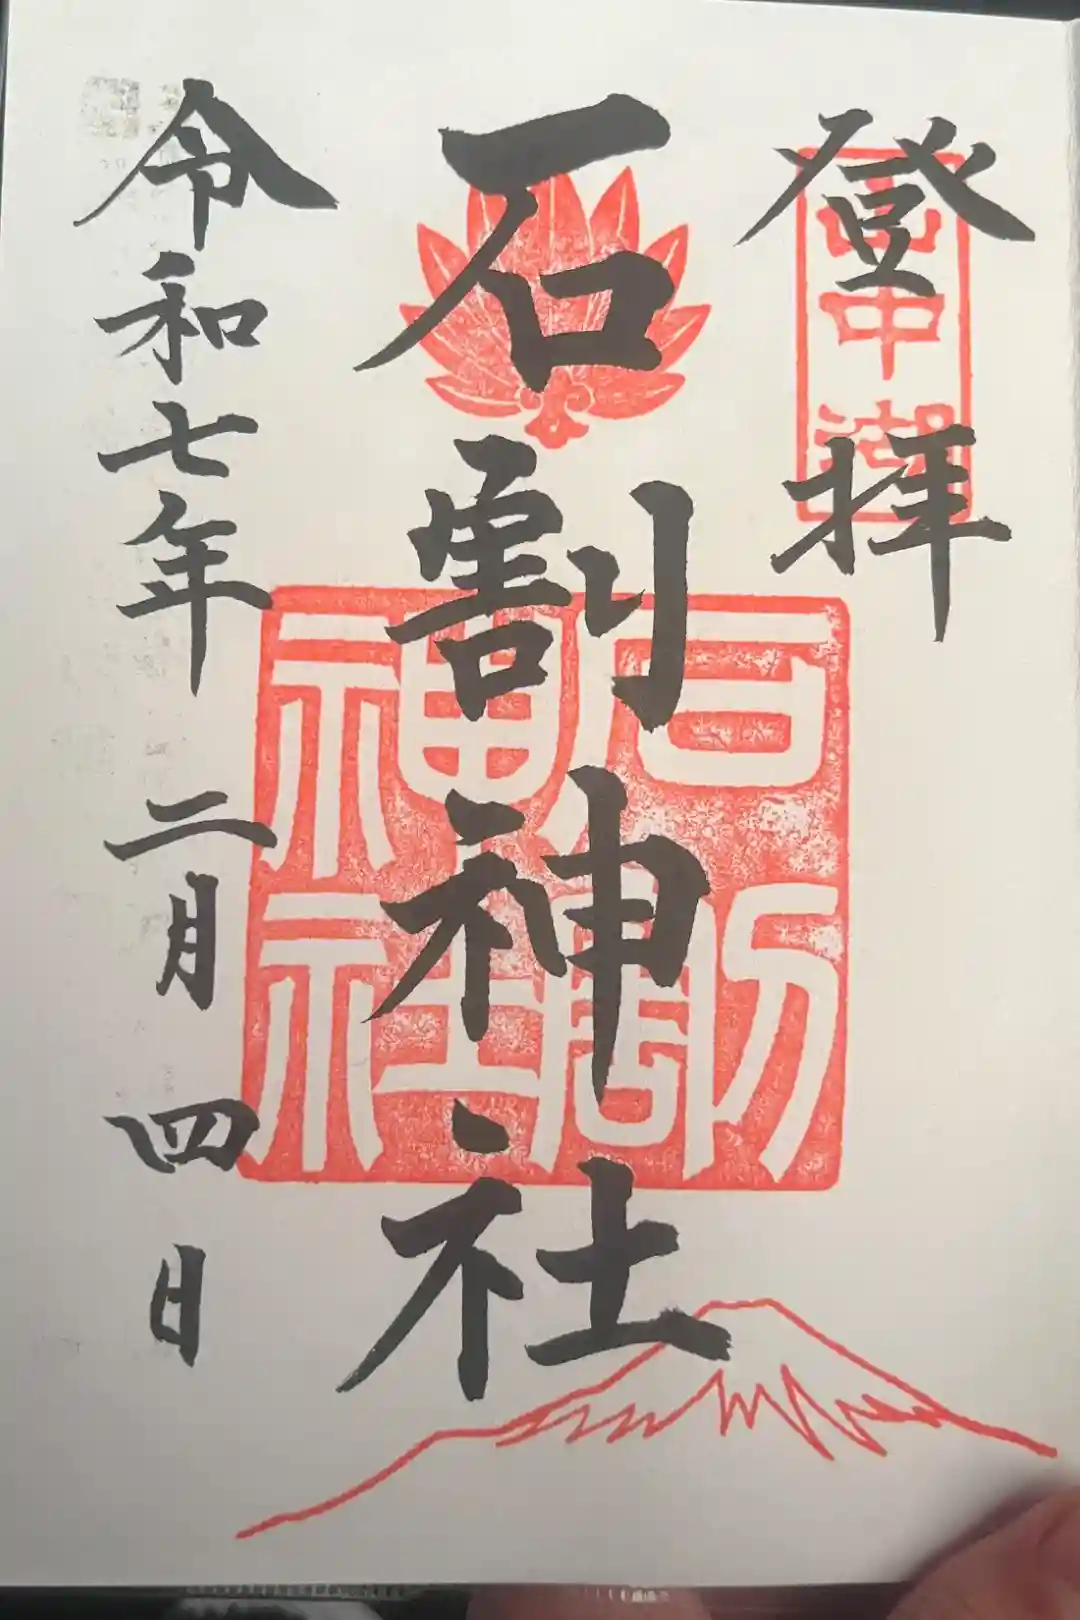 登拝
山中湖
石割神社
石割神社
令和七年 二月 四日